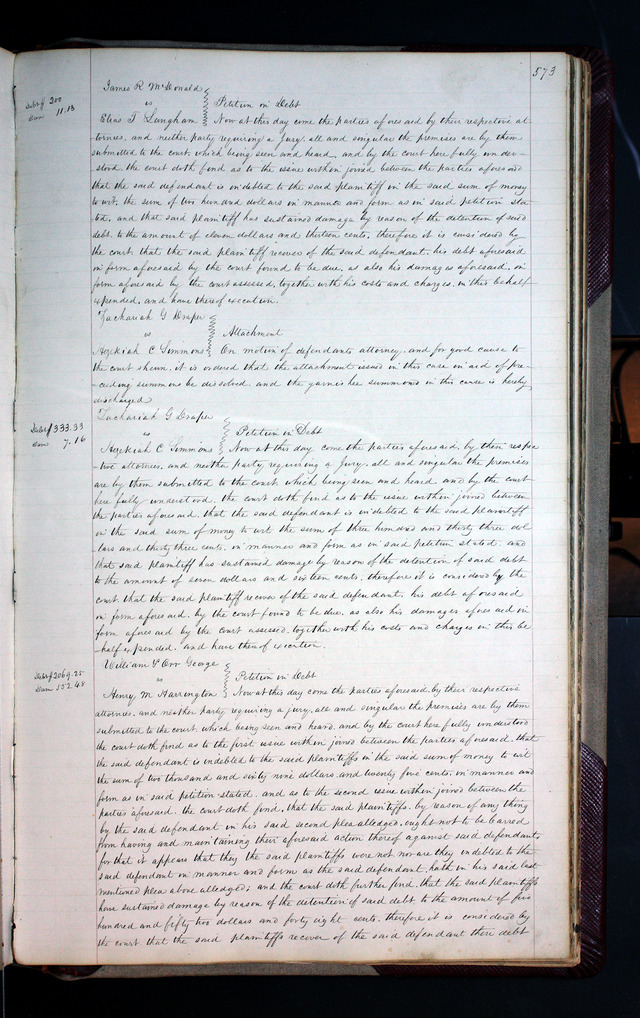 573
James R McDonald
Debt $ 200
vs Petition in Debt
Dam 11.13
Elias T Langham Now at this day come the parties aforesaid by their respective at
tornies, and neither party requiring a jury, all and singular the premises are by them
submitted to the court, which being seen and heard, and by the court here fully under-
stood, the court doth find as to the issue within joined between the parties aforesaid
that the said defendant is indebted to the said plaintiff in the said sum of money
to wit, the sum of two hundred dollars in manner and form as in said petition sta
ted, and that said plaintiff has sustained damage by reason of the detention of said
debt, to the amount of eleven dollars and thirteen cents, therefore it is considered by
the court, that the said plaintiff recover of the said defendant, his debt aforesaid
in form aforesaid by the court found to be due, as also his damages aforesaid, in
form aforesaid by the court assessed, together with his costs and charges, in this behalf
expended, and have thereof execution.
Zachariah G Draper
vs Attachment
Hezekiah C Simmons On motion of defendants attorney, and for good cause to
the court shewn, it is ordered that the attachment issued in this case in aid of pre-
ceeding summons be dissolved, and the garnishee summoned in this cause is hereby
discharged
Zachariah G Draper
Debt $ 333.33
vs Petition in Debt
Dam 7.16
Hezekiah C Simmons Now at this day come the parties aforesaid, by their respec
-tive attornies, and neither party, requiring a jury, all and singular the premises
are by them submitted to the court, which being seen and heard and by the court
here fully understood, the court doth find as to the issue within joined between
the parties aforesaid, that the said defendant is indebted to the said plaintiff
in the said sum of money to wit the sum of three hundred and thirty three dol
lars and thirty three cents, in manner and form as in said petition stated, and
that said plaintiff has sustained damage by reason of the detention of said debt
to the amount of seven dollars and sixteen cents, therefore it is considered by the
court, that the said plaintiff recover of the said defendant, his debt aforesaid
in form aforesaid, by the court found to be due, as also his damages aforesaid in
form aforesaid by the court assessed, together with his costs and charges in this be
-half expended, and have thereof execution.
William P Orr George
Debt $ 2069.25
vs Petition in Debt
Dam 552.48
Henry M Harrington Now at this day come the parties aforesaid, by their respective
attornies, and neither party requiring a jury, all and singular the premises are by them
submitted to the court, which being seen and heard, and by the court here fully understood
the court doth find as to the first issue within joined between the parties aforesaid, that
the said defendant is indebted to the said plaintiffs in the said sum of money to wit
the sum of two thousand and sixty nine dollars, and twenty five cents, in manner and
form as in said petition stated, and as to the second issue within joined between the
parties aforesaid, the court doth find, that the said plaintiffs, by reason of any thing
by the said defendant in his said second plea alledged, ought not to be barred
from having and maintaining their aforesaid action thereof against said defendant,
for that it appears that they the said plaintiffs were not, nor are they indebted to the
said defendant in manner and form as the said defendant, hath in his said last
mentioned plea above alledged; and the court doth further find, that the said plaintiffs
have sustained damage by reason of the detention of said debt to the amount of five
hundred and fifty two dollars and forty eight cents, therefore it is considered by
the court that the said plaintiffs recover of the said defendant there debt